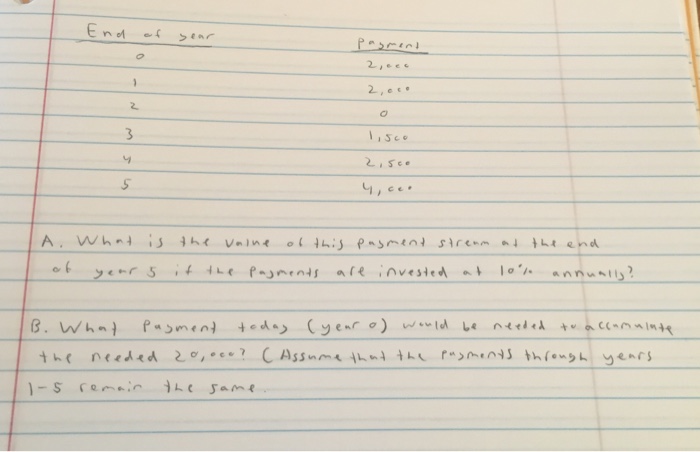 End of year Payment
0 2,000
1 2,000
2 0
3 1,500
4 2,500
5 4,000
A. What is the value of this payment stream at the end
of year 5 if the payments are invested at 10% annually?
B. What payment today (year 0) would be needed to accumulate
the needed 20,000? (Assume that the payments through years
1-5 remain the same.